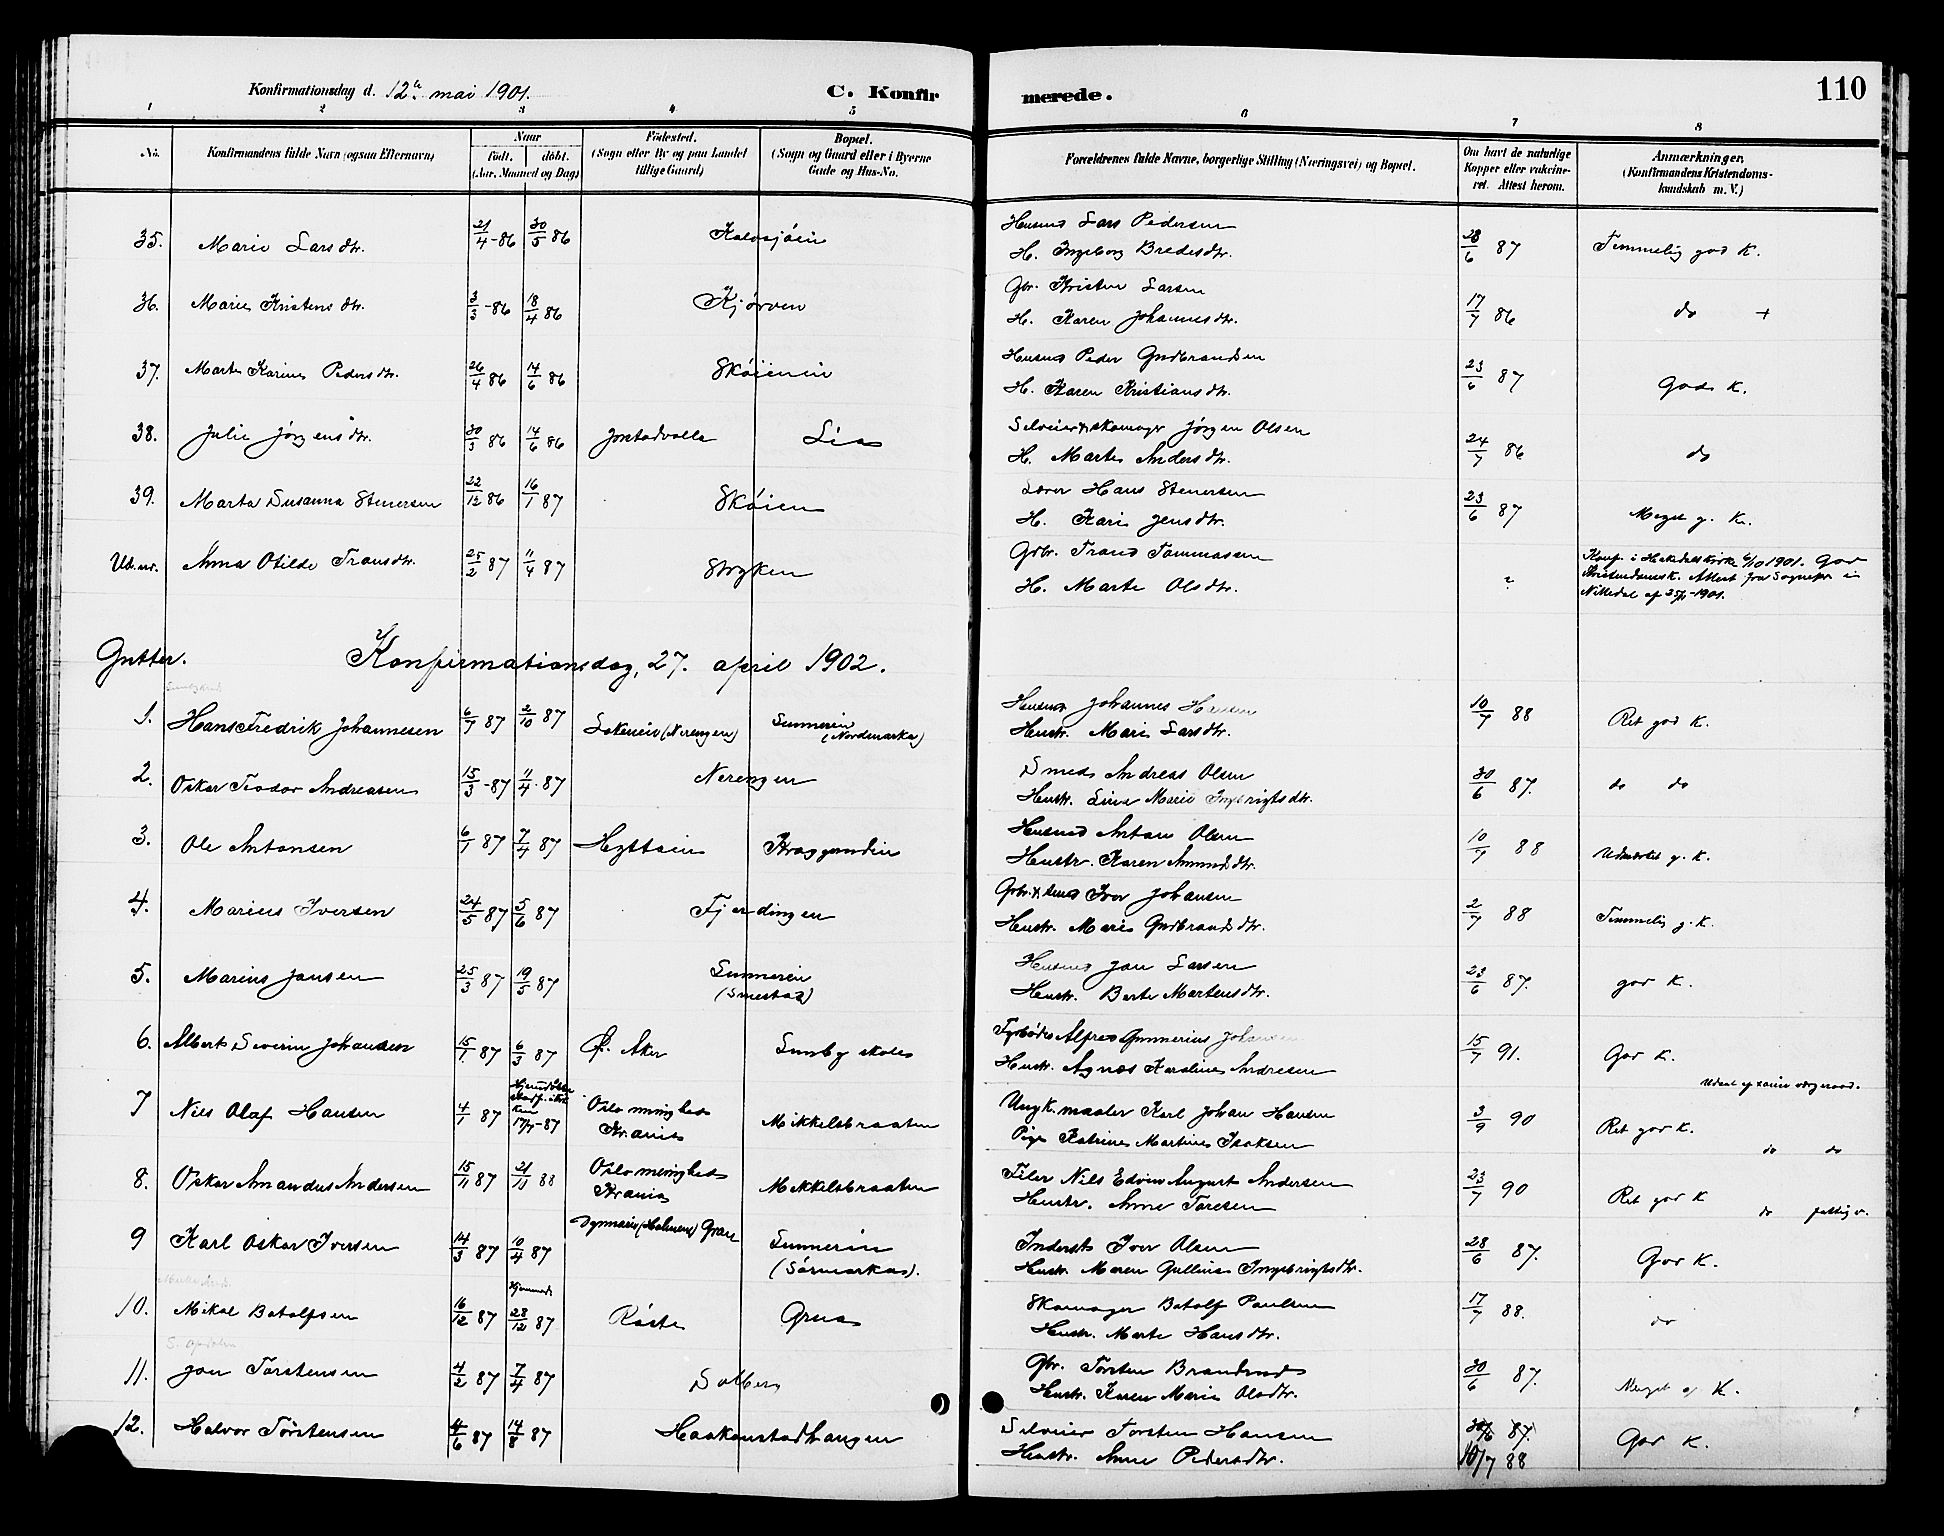 110
Konfirmationsdag d. 12te mai 1901.
C. Konfirmerede.
1 2 3 4 5 6 7 8
No. Konfirmandens fulde Navn (ogsaa Efternavn) Naar født. døbt. (Aar, Maaned og Dag) Fødested. (Sogn eller By og paa Landet tillige Gaard) Bopæl. (Sogn og Gaard eller i Byerne Gade og Hus-No. Forældrenes fulde Navne, borgerlige Stilling (Næringsvei) og Bopæl. Om havt de naturlige Kopper eller vakcineret. Attest herom. Anmærkninger. (Konfirmandens Kristendomskundskab m. V.)
35. Marie Larsdtr. 21/4-86 30/5 86 Kalvsjøen Husmd Lars Pedersen
H. Ingeborg Bredesdtr. 28/6 87 Temmelig god K.
36. Marie Kristensdtr. 3/3-86 18/4 86 Kjørven Gbr. Kristen Larsen
H. Karen Johannesdtr. 17/7 86 do +
37. Marte Karine Pedersdtr. 26/4 86 14/6 86 Skøieneie Husmd Peder Gudbrandsen
H. Karen Kristiansdtr. 23/6 87 God K.
38. Julie Jørgensdtr. 30/3 86 14/6 86 Jorstadvolla Lia Selveier & skomager Jørgen Olsen
H. Marte Andersdtr. 24/7 86 do
39. Marta Susanna Stenersen 22/12 86 16/1 87 Skøien Lærer Hans Stenersen
H. Kari Jensdtr. 23/6 87 Meget g. K.
Ud.nr. Anna Otilde Transdtr. 25/2 87 11/4 87 Stryken Grbr. Trand Tommasen
H. Marte Olsdtr. ? Konf. i Hakedals kirke 6/10 1901. God
Kristendomsk. Attest fra Sognepr. i
Nittedal af 25/ -1901.
Gutter. Konfirmationsdag, 27. april 1902.
1. Hans Fredrik Johannesen 6/7 87 2/10 87 (Nerengen) Sunnerin
(Nordmarka) Husmd Johannes Hansen
Hustr. Mari Larsdtr. 10/7 88 Ret god K.
2. Oskar Teodor Andreasen 15/3-87 11/4-87 Nerengen Smed Andreas Olsen
Hustr. Lina Marie Ingbrigtsdtr. 30/6 87. do do
3. Ole Antonsen 6/1 87 7/4 87 Hytteeie Kraggerudeie Husmd Anton Olsen
Hustr. Karen Amundsdtr. 10/7 88 Udmærket g. K.
4. Marius Iversen 24/5 87 5/6 87 Fjerdingen Grbr. & smed Iver Johansen
Hustr. Marie Gudbrandsdtr. 2/7 88 Temmelig g. K.
5. Marius Jansen 25/3 87 19/5 87 Sunnerin
(Smestad) Husmd Jan Larsen
Hustr. Berte Martensdtr. 23/6 87. god K.
6. Albert Severin Johansen 15/1 87 6/3 87 Ø. Aker Sunby skole Fyrbøder Alfred Gunnerius Johansen
Hustr. Agnæs Karoline Andresen 15/7 91. God K.
Udsat af værgeraad.
7 Nils Olaf Hansen 4/1 87 Hjemmedøbt
Stadf. i kirken
17/7-87 Oslo menighed
Kr.ania Mikkelsbraaten Uægt. maaler Karl Johan Hansen
Pige Katrine Martine Isaksen 3/9 90 Ret god K.
do do
8. Oskar Amandus Andersen 15/11 87 21/11 88 Oslo menighed
Kr.ania Mikkelsbraaten Filer Nils Edvin August Andersen
Hustr. Anne Toresen 23/7 90 Ret god K
do fattigv.
9 Karl Oskar Iversen 14/3 87 10/4 87 (Holmen) Gran Sunnerin
(Sørmarka). Inderst Iver Olsen
Hustr. Maren Gulline Ingebrigtsdtr. 28/6 87. God K.
10. Mikal Batolfsen 16/12 87 Hjemmed.
28/12 87 Røste Grua Skomager Batolf Paulsen
Hustr. Marte Hansdtr. 17/7 88. do
11. Jon Torstensen 4/2 87 7/4 87 Solberg Gbr. Torsten Brandsrud
Hustr. Karen Marie Olsdtr. 30/6 87. Meget g K.
12. Halvor Torstensen 4/6 87 14/8 87 Haakenstadhaugen Selveier Torsten Hansen
Hustr. Anne Pedersdtr. 30/6 87.
10/7 88 God K.